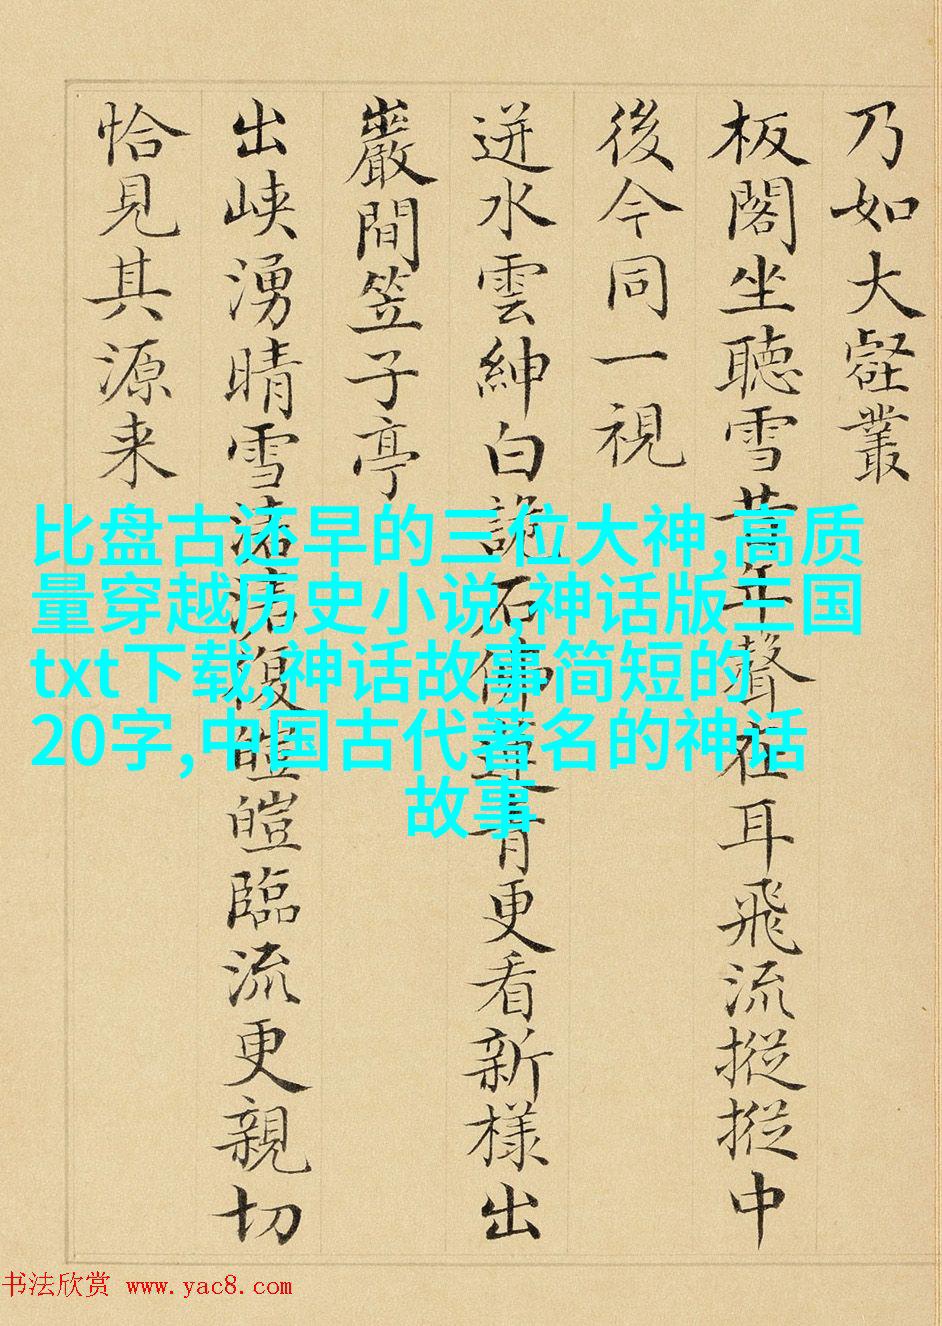 乃如大壑叢
板閣坐聽雪昔年聲在耳飛流摐摐中
後今同一視
迸水雲紳白詭石佛青更看新樣出
巖間笠子亭
出峽湧晴雪渚復皚皚臨流更親切
恰見其源来
比盘古还早的三位大神,高质
量穿越历史小说,神话版三国
txt下载,神话故事简短的
20字,中国古代著名的神话
故事
书法欣赏 www.yac8.com